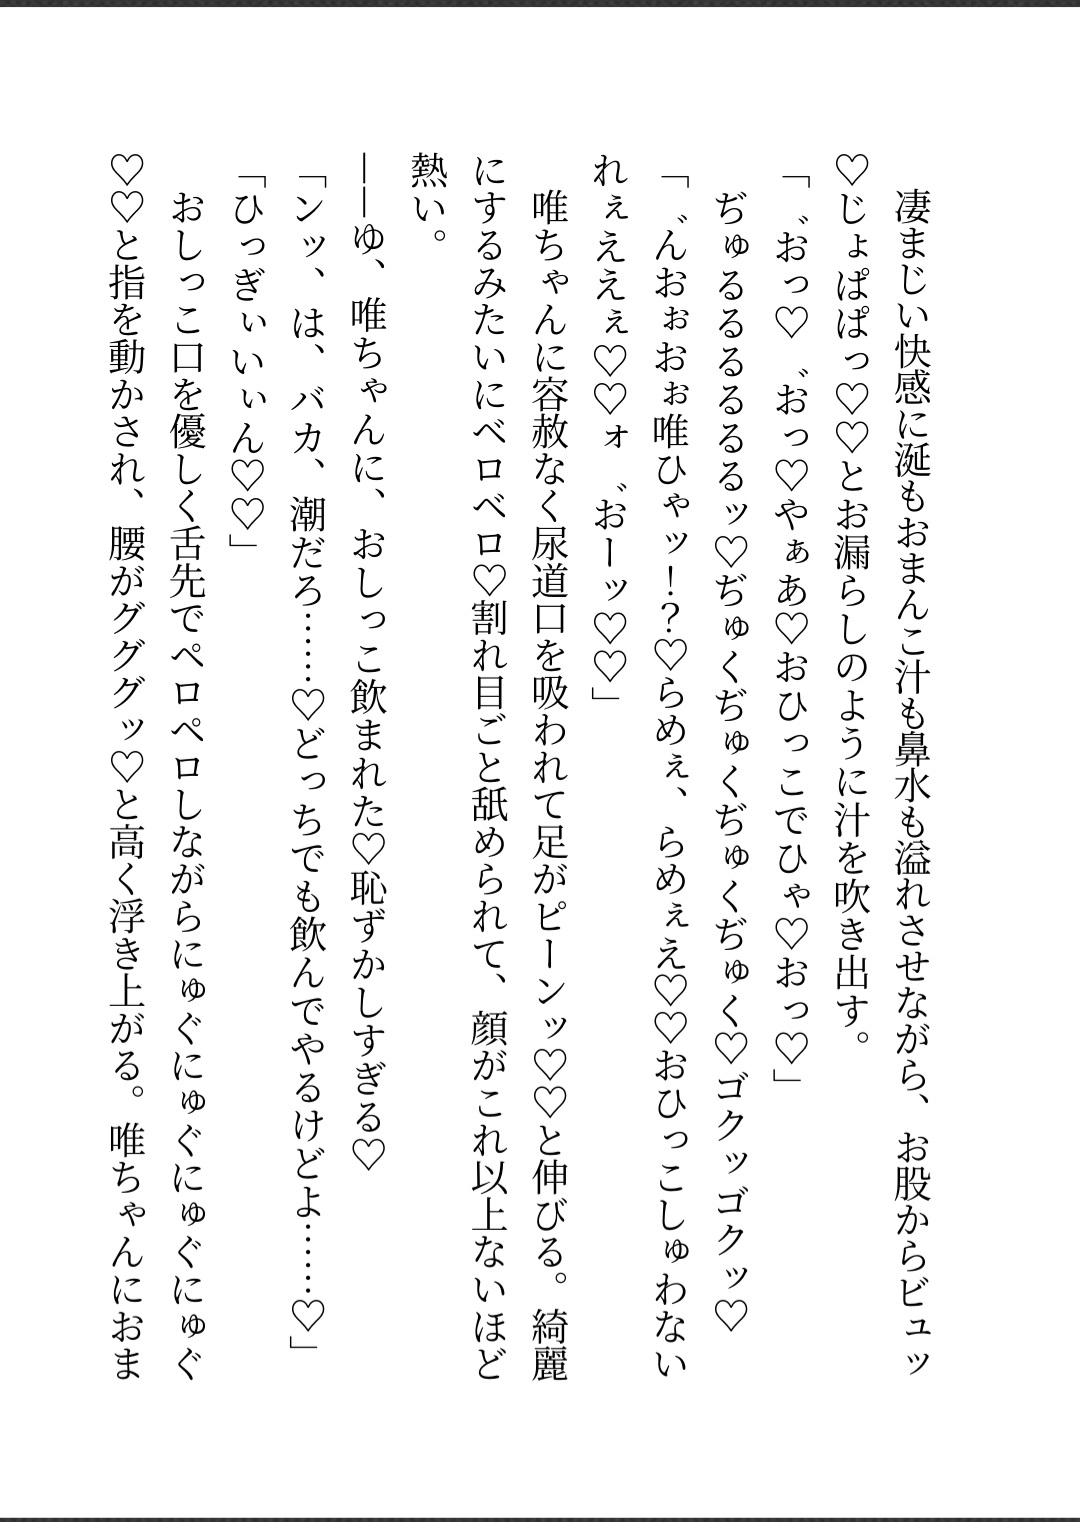 凄まじい快感に涎もおまんこ汁も鼻水も溢れさせながら、お股からビュッ
♡じょぱぱっ♡♡とお漏らしのように汁を吹き出す。
「゛おっ♡　゛おっ♡やぁあ♡おひっこでひゃ♡おっ♡」
ぢゅるるるるるッ♡ぢゅくぢゅくぢゅくぢゅく♡ゴクッゴクッ♡
「゛んおぉおぉ唯ひゃッ！？♡らめぇ、らめぇえ♡♡おひっこしゅわない
れぇええぇ♡♡ォ゛おーッ♡♡」
唯ちゃんに容赦なく尿道口を吸われて足がピーンッ♡♡と伸びる。綺麗
にするみたいにベロベロ♡割れ目ごと舐められて、顔がこれ以上ないほど
熱い。
――ゆ、唯ちゃんに、おしっこ飲まれた♡恥ずかしすぎる♡
「ンッ、は、バカ、潮だろ……♡どっちでも飲んでやるけどよ……♡」
「ひっぎぃいぃん♡♡」
おしっこ口を優しく舌先でペロペロしながらにゅぐにゅぐにゅぐにゅぐ
♡♡と指を動かされ、腰がグググッ♡と高く浮き上がる。唯ちゃんにおま